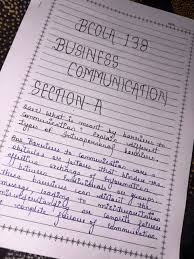 BCOLA 138
BUSINESS
COMMUNICATION
SECTION-A
Que1 What is meant by barriers to
communication? Explain different
types of Interpersonal barriers.
Ans Barriers to communication are
obstacles or factors that hinder the
effective exchange of information
between individuals or groups.
These barriers can distort the
message, leading to misinterpretation
misunderstanding or
complete failure of communication.